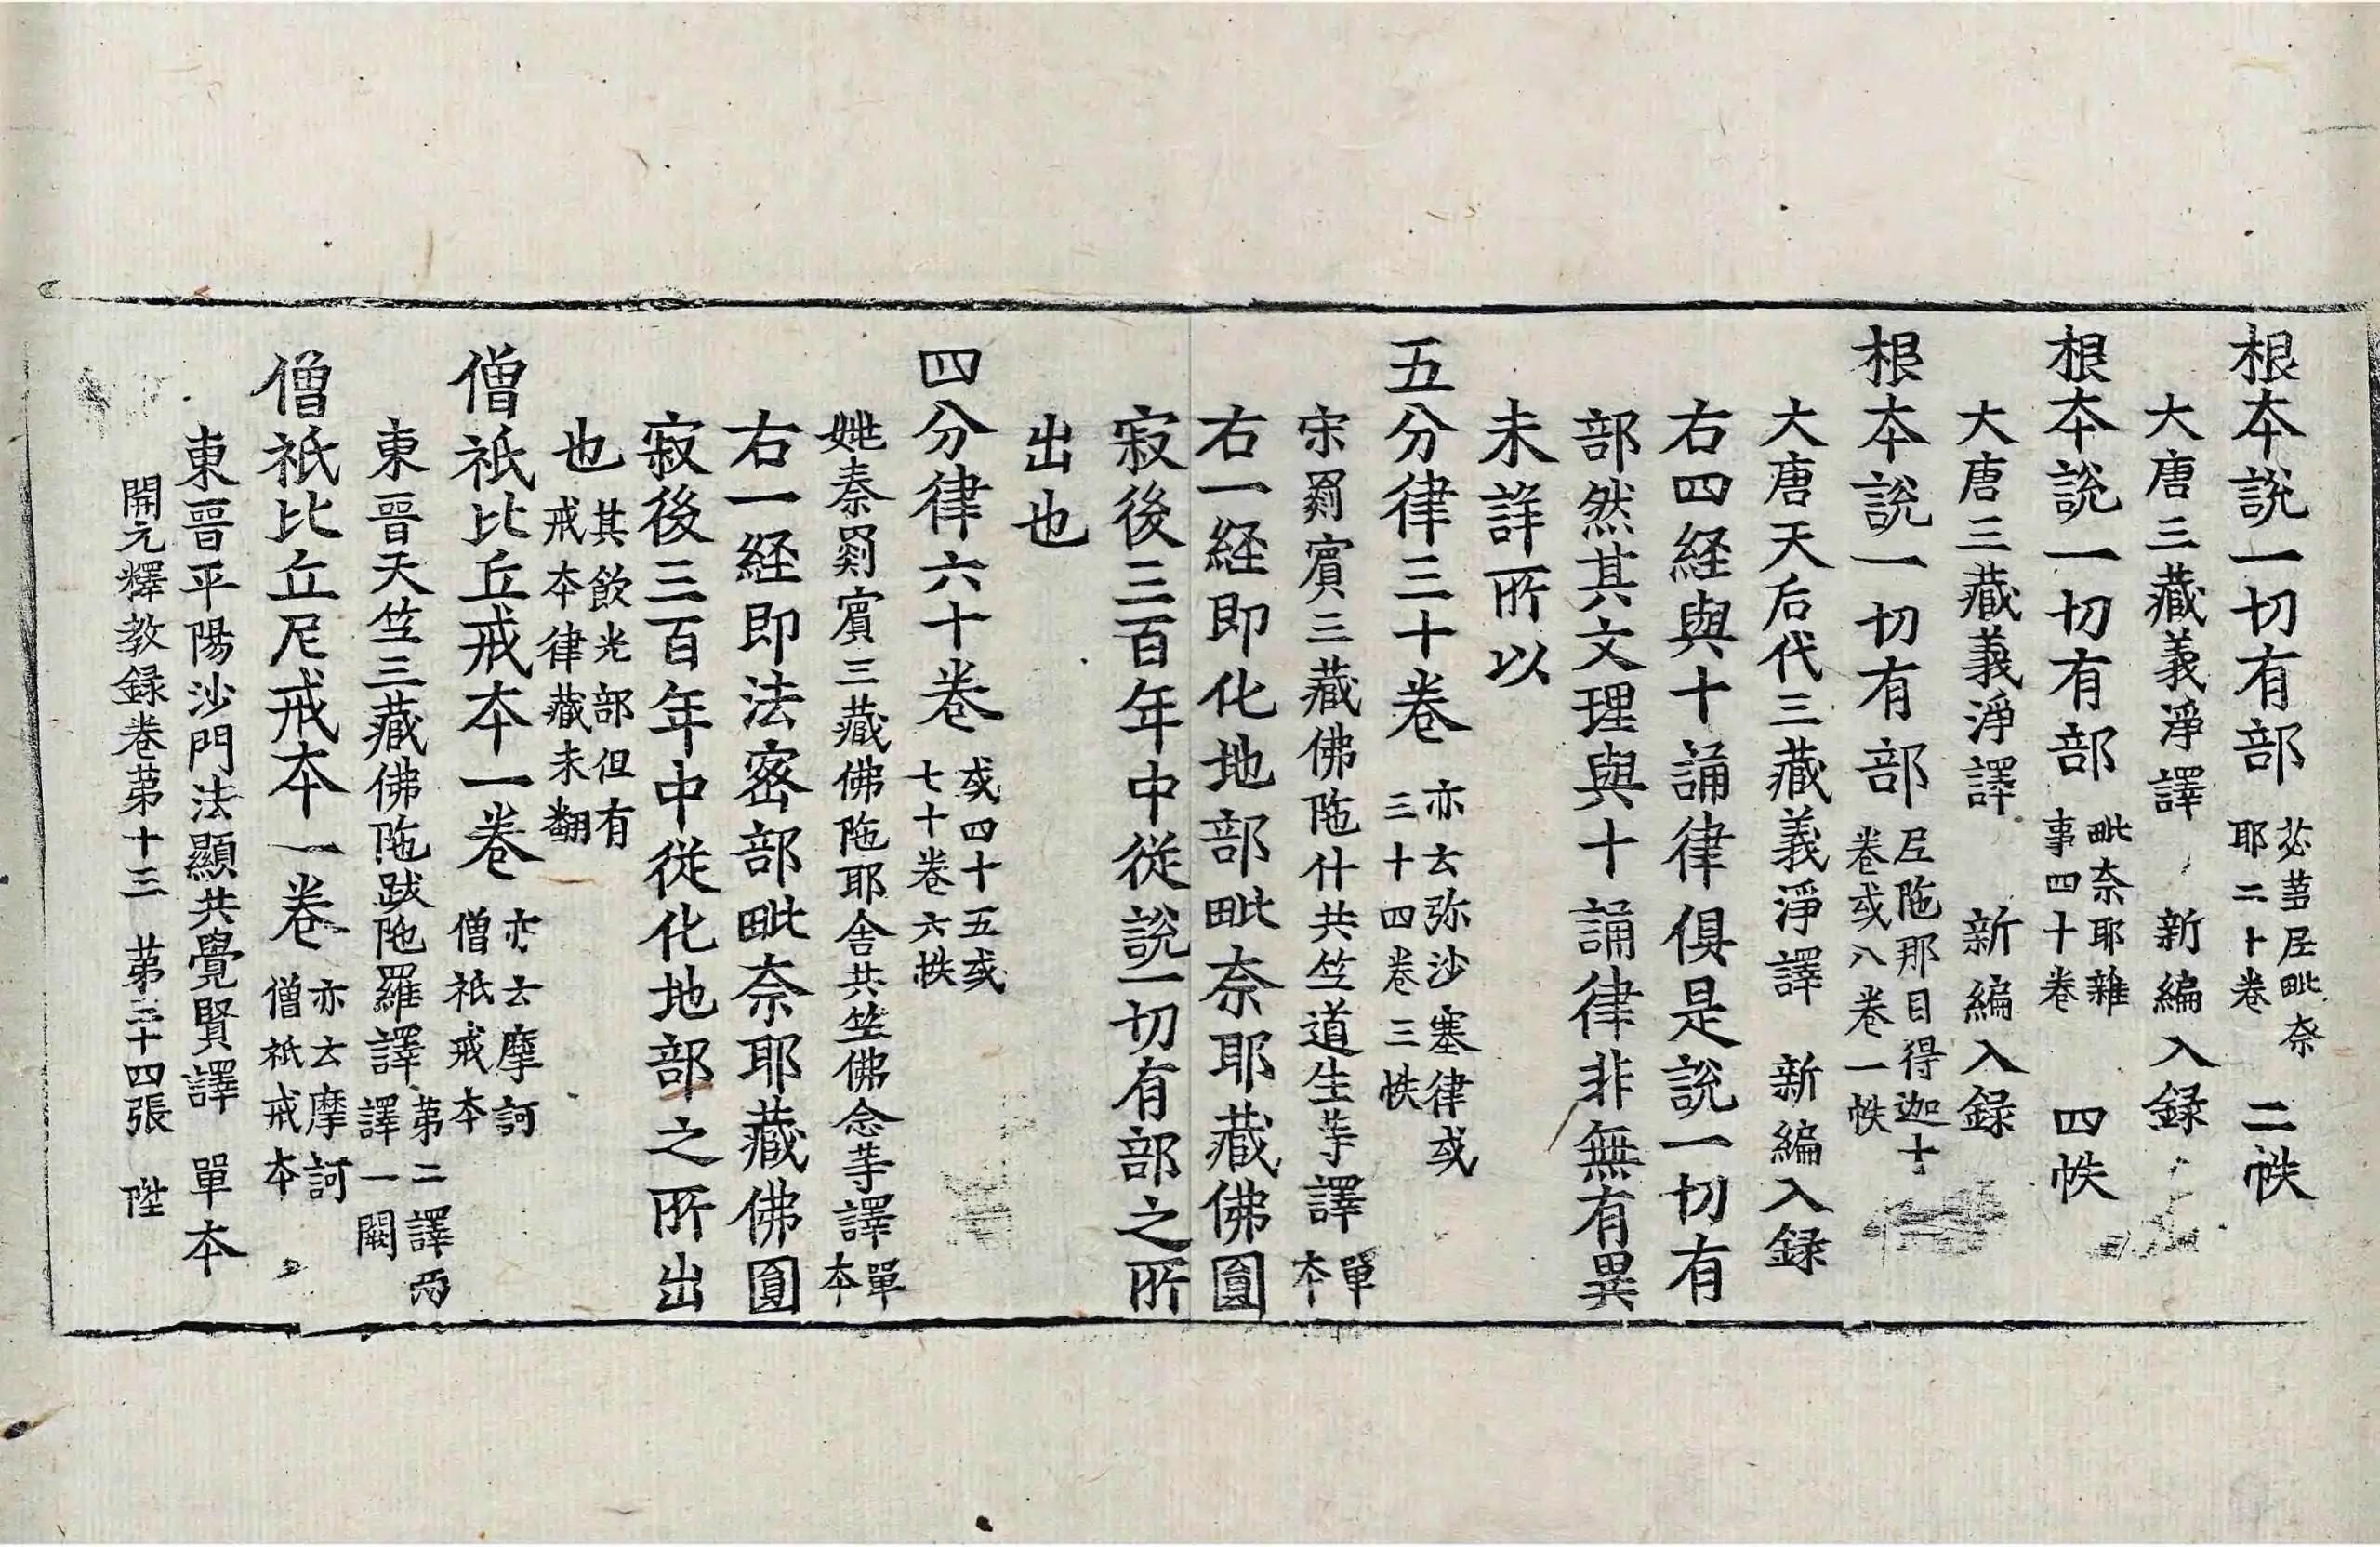 根本說一切有部苾蒭尼毗奈耶二十卷 二帙
大唐三藏義淨譯 新編入録
根本說一切有部毗奈耶雜事四十卷 四帙
大唐三藏義淨譯 新編入録
根本說一切有部尼陁那目得迦十卷或八卷一帙
大唐天后代三藏義淨譯 新編入録
右四経與十誦律俱是說一切有
部然其文理與十誦律非無有異
未詳所以
五分律三十卷亦云弥沙塞律或三十四卷三帙
宋罽賓三藏佛陁什共竺道生䓁譯單本
右一経即化地部毗奈耶藏佛圓
寂後三百年中從說一切有部之所
出也
四分律六十卷或四十五或七十卷六帙
姚秦罽賓三藏佛陁耶舍共竺佛念䓁譯單本
右一経即法密部毗奈耶藏佛圓
寂後三百年中從化地部之所出
也其飲光部但有戒本律藏未翻
僧祇比丘戒本一卷亦云摩訶僧祇戒本
東晉天竺三藏佛陁跋陁羅譯第二譯兩譯一闕
僧祇比丘尼戒本一卷亦云摩訶僧祇戒本
東晉平陽沙門法顯共覺賢譯 單本
開元釋教録卷第十三 第三十四張 陞